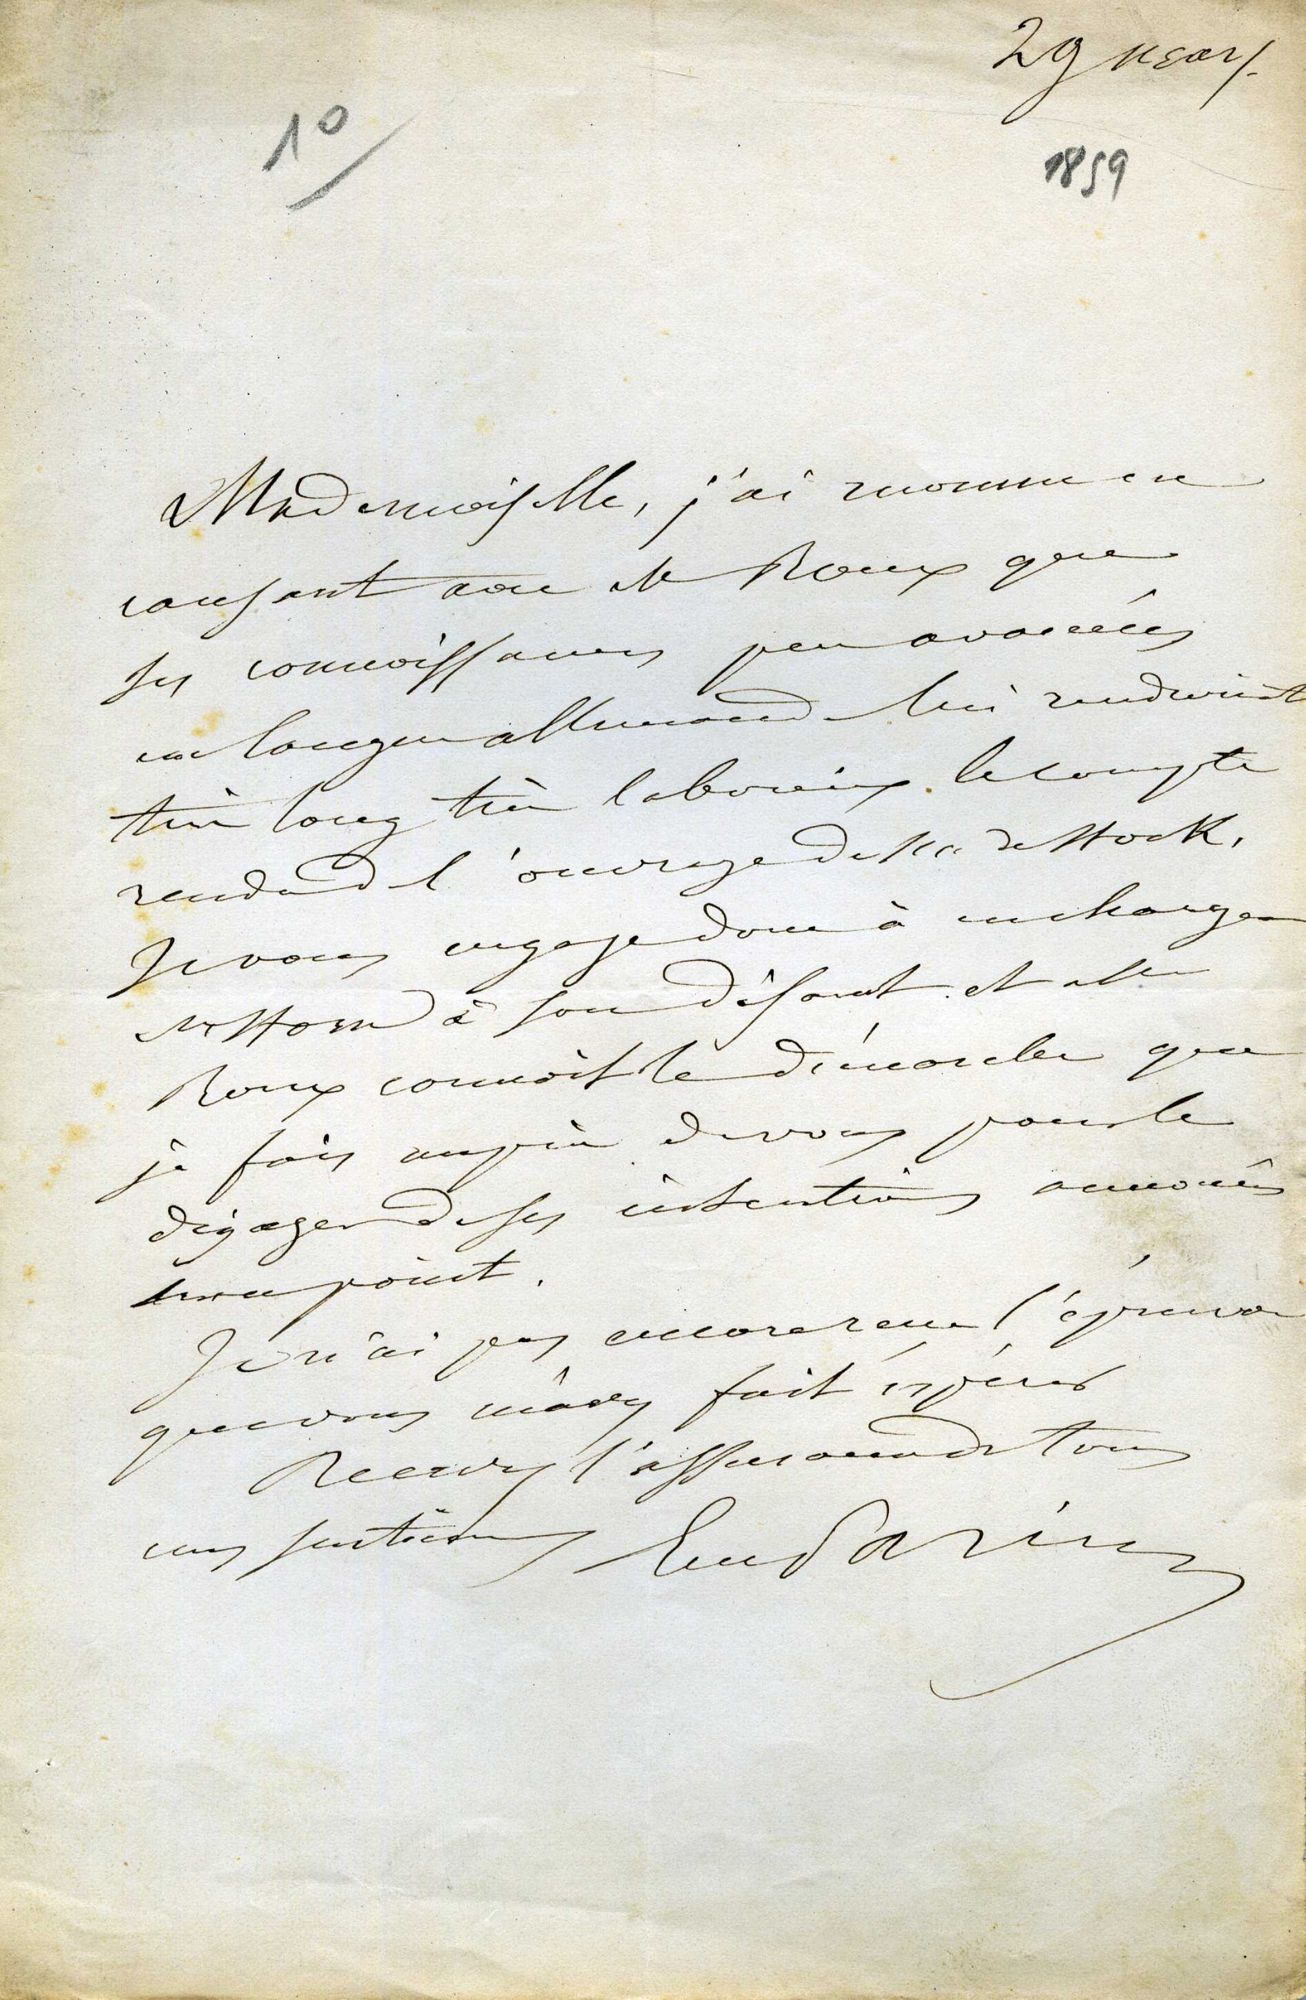 29 mars.
1°
1859
Mademoiselle, j'ai reconnu en
causant avec M Roux que
ses connoissances peu avancées
en langue allemande lui rendroient
très long très laborieux le compte
rendu de l'ouvrage de M de Stock.
Je vous engage donc à en charger
à son défaut et M
Roux connoit la démarche que
je fais auprès de vous pour le
dégager de ses intentions
point.
Je n'ai pas encore reçu l'épreuve
que vous m'avez fait espérer
Recevez l'assurance de tous
mes sentimens